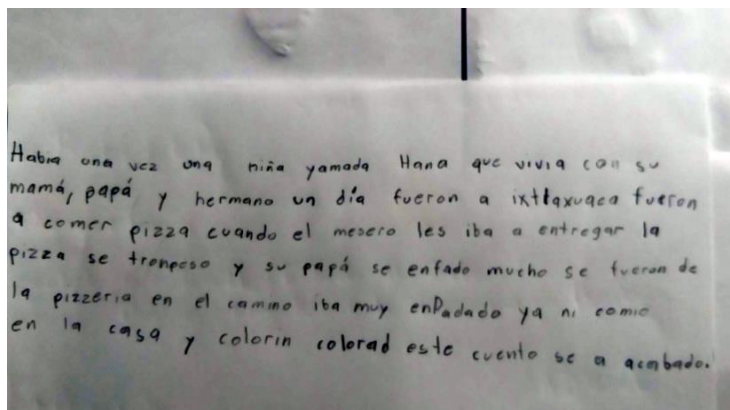 Habia una vez una niña yamada Hana que vivia con su
mamá, papá y hermano un día fueron a ixtlaxuaca fueron
a comer pizza cuando el mesero les iba a entregar la
pizza se tronpeso y su papá se enfado mucho se fueron de
la pizzeria en el camino iba muy enfadado ya ni comio
en la casa y colorin colorad este cuento se a acabado.